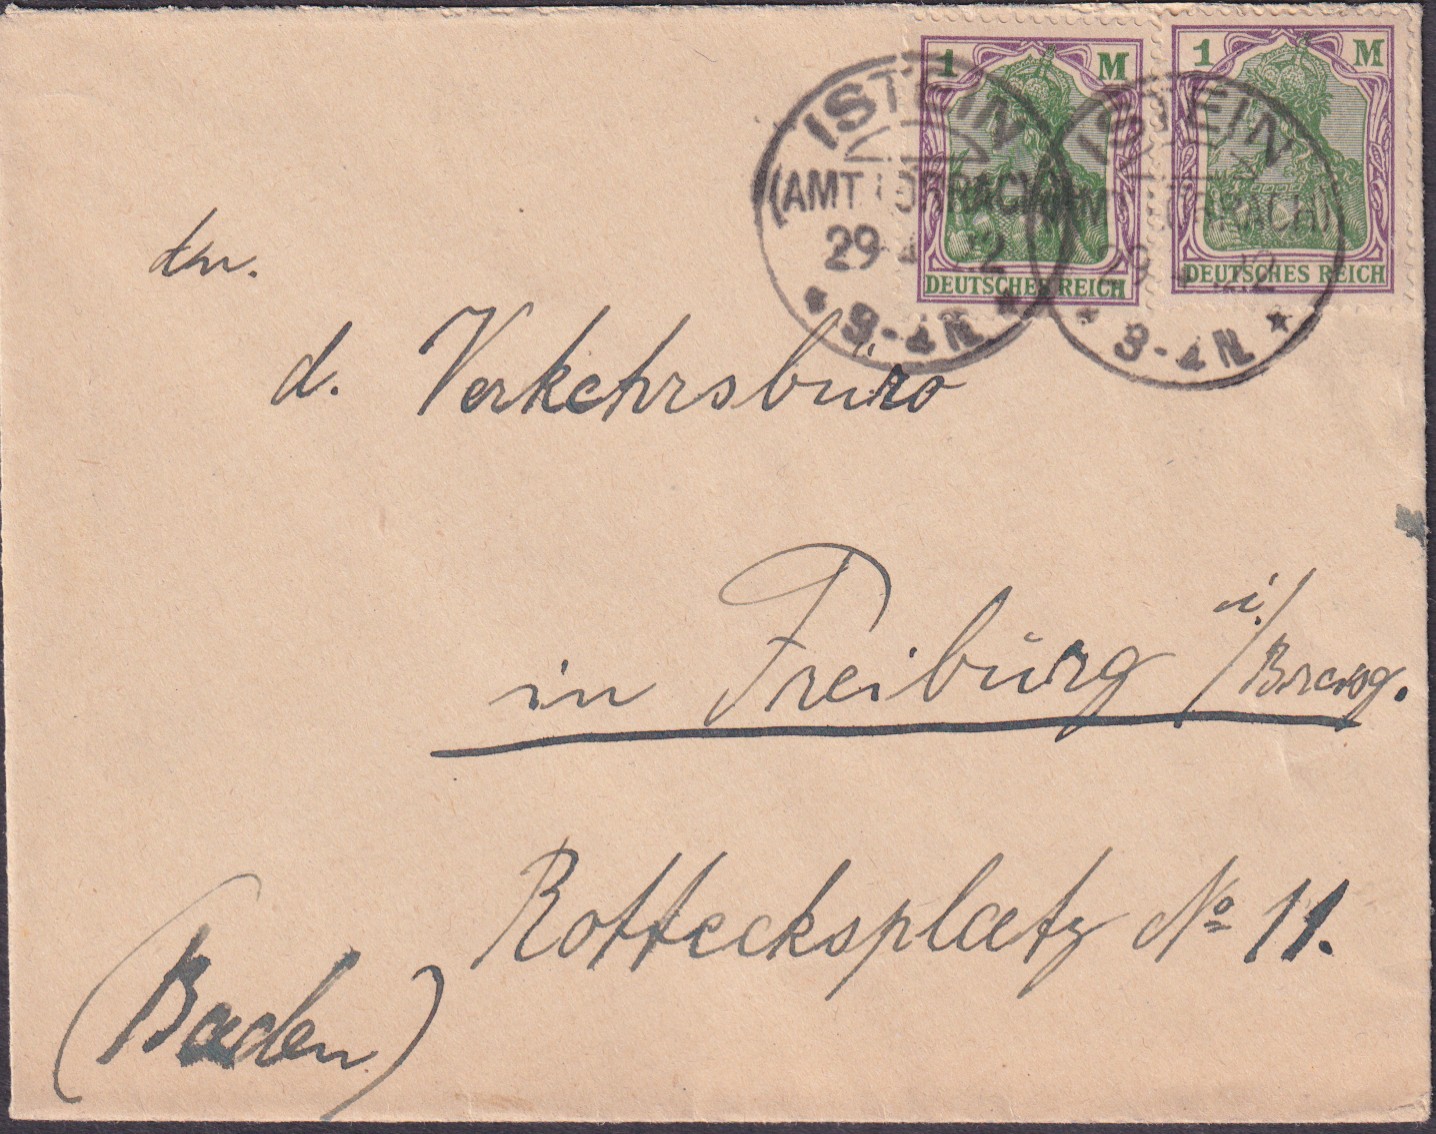 1 M
DEUTSCHES REICH
1 M
DEUTSCHES REICH
ISTEIN
(AMT LÖRRACH)
29 4 22
* 3-4 N. *
ISTEIN
(AMT LÖRRACH)
29 4 22
* 3-4 N. *
d. Verkehrsbüro
in Freiburg i./Brsg.
Rottecksplatz No 11.
(Baden)